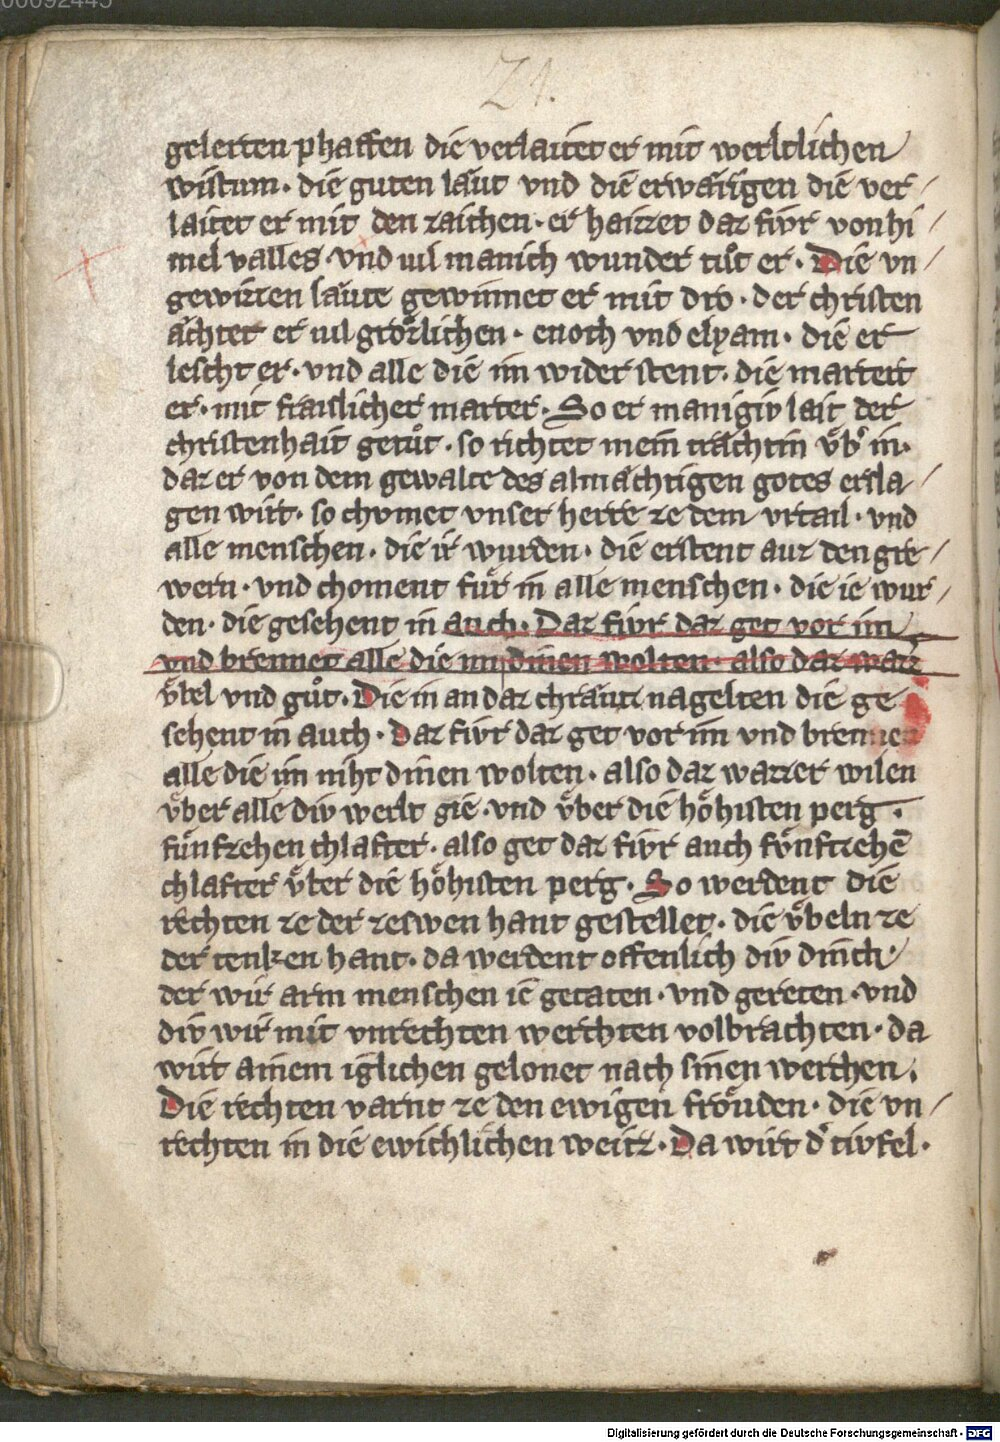 00092445
21.
gelerten phaffen die verlaitet er mit werltlichen
wistum. die guten laͤut vnd die erwaͤrigen die ver/
laitet er mit den zaichen. er haizzet daz fiwr von hi/
mel valles. vnd uil manich wunder tuͦt er. Die vn/
gewizzen laͤute gewinnet er mit dro. der christen
aͤchtet er uil groͤzlichen. enoch vnd elyam. die er
lescht er. vnd alle die im wider stent. die martert
er. mit fraislicher marter. So er manigiv lait der
christenhait getuͦt. so richtet mein traͤchtin vͤb̕ in.
daz er von dem gewalte des almaͤchtigen gotes ersla/
gen wirt. so chvmet vnser herre ze dem vrtail. vnd
alle menschen. die ir wurden. die erstent auz den gre/
wern. vnd choment fuͤr in alle menschen. die ie wur/
den. die gesehent in auch. Daz fiwr daz get vor im
vnd brennet alle die im dinen wolten. also daz wazz̕
vͤbel vnd guͦt. Die in an daz chraͤutz nagelten die ge
sehent in auch. Daz fiwr daz get vor im vnd brennet
alle die im niht dinen wolten. also daz wazzer wilen
vͤber alle div werlt gie. vnd vͤber die hoͤhisten perg.
fuͤnfzehen chlafter. also get daz fiwr auch fvͤnfzehē
chlafter vͤber die hoͤhisten perg. So werdent die
rechten ze der zeswen hant gestellet. die vͤbeln ze
der tenken hant. da werdent offenlich div dinch
der wir arm menschen ie getaten. vnd gereten. vnd
div wir mit vnrechten werchten volbrachten. da
wirt ainem iglichen gelonet nach sinen werchen.
Die rechten varnt ze den ewigen froͤuden. die vn/
rechten in die ewichlichen weitz. Da wirt d̕ tivfel.
Digitalisierung gefördert durch die Deutsche Forschungsgemeinschaft - DFG